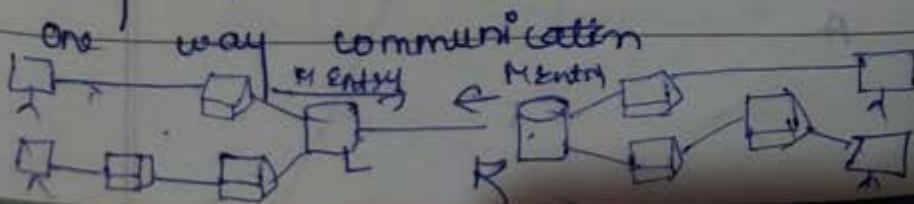 One way communication
M Entry M Entry
L
R